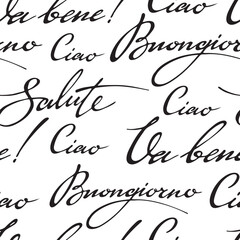 Va bene!
Ciao
Buongiorno
Ciao
Salute
Ciao
Ciao
Va bene
Ciao
Buongiorno
Ciao